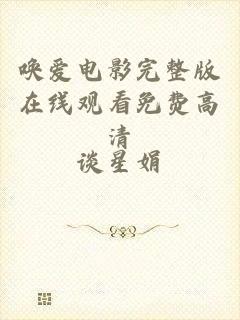 唤爱电影完整版
在线观看免费高
清
谈星娟